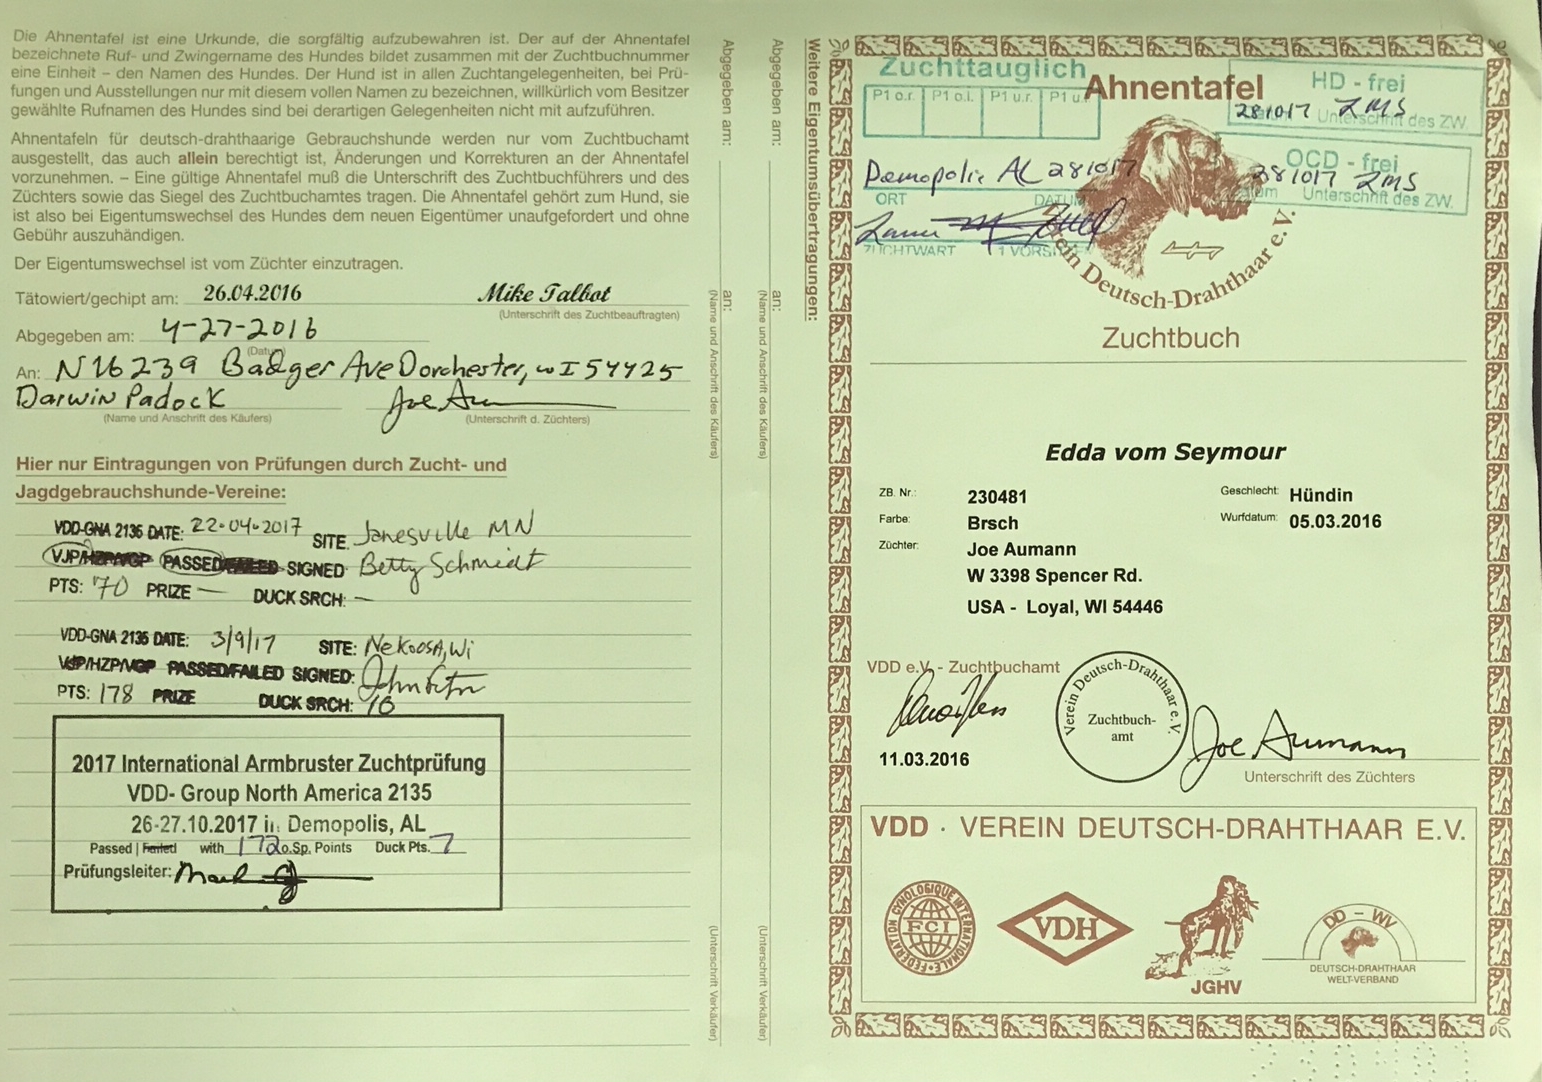 Die Ahnentafel ist eine Urkunde, die sorgfältig aufzubewahren ist. Der auf der Ahnentafel
bezeichnete Ruf- und Zwingername des Hundes bildet zusammen mit der Zuchtbuchnummer
eine Einheit – den Namen des Hundes. Der Hund ist in allen Zuchtangelegenheiten, bei Prü-
fungen und Ausstellungen nur mit diesem vollen Namen zu bezeichnen, willkürlich vom Besitzer
gewählte Rufnamen des Hundes sind bei derartigen Gelegenheiten nicht mit aufzuführen.
Ahnentafeln für deutsch-drahthaarige Gebrauchshunde werden nur vom Zuchtbuchamt
ausgestellt, das auch allein berechtigt ist, Änderungen und Korrekturen an der Ahnentafel
vorzunehmen. – Eine gültige Ahnentafel muß die Unterschrift des Zuchtbuchführers und des
Züchters sowie das Siegel des Zuchtbuchamtes tragen. Die Ahnentafel gehört zum Hund, sie
ist also bei Eigentumswechsel des Hundes dem neuen Eigentümer unaufgefordert und ohne
Gebühr auszuhändigen.
Der Eigentumswechsel ist vom Züchter einzutragen.
Tätowiert/gechipt am: 26.04.2016 Mike Talbot
(Unterschrift des Zuchtbeauftragten)
Abgegeben am: 4-27-2016
(Datum)
An: N16239 Badger Ave Dorchester, WI 54425
Darwin Padock Joe Au
(Name und Anschrift des Käufers) (Unterschrift d. Züchters)
Hier nur Eintragungen von Prüfungen durch Zucht- und
Jagdgebrauchshunde-Vereine:
VDD-GNA 2135 DATE: 22-04-2017 SITE: Janesville MN
VJP/HZP/VGP PASSED/FAILED SIGNED: Betty Schmidt
PTS: 70 PRIZE — DUCK SRCH: —
VDD-GNA 2135 DATE: 3/9/17 SITE: Nekoosa, Wi
VJP/HZP/VGP PASSED/FAILED SIGNED:
PTS: 178 PRIZE DUCK SRCH: 10
2017 International Armbruster Zuchtprüfung
VDD- Group North America 2135
26-27.10.2017 in Demopolis, AL
Passed | Failed with 172 o.Sp. Points Duck Pts. 7
Prüfungsleiter:
Abgegeben am:
an:
(Name und Anschrift des Käufers)
(Unterschrift Verkäufer)
Abgegeben am:
an:
(Name und Anschrift des Käufers)
(Unterschrift Verkäufer)
Weitere Eigentumsübertragungen:
Zuchttauglich
P1 o.r. P1 o.l. P1 u.r. P1 u.
Ahnentafel
HD - frei
281017 ZMS
Unterschrift des ZW.
OCD - frei
281017 ZMS
Datum Unterschrift des ZW.
Demopolis AL 281017
ORT DATUM
ZUCHTWART 1 VORS
Verein Deutsch-Drahthaar e.V.
Zuchtbuch
Edda vom Seymour
ZB. Nr.: 230481 Geschlecht: Hündin
Farbe: Brsch Wurfdatum: 05.03.2016
Züchter: Joe Aumann
W 3398 Spencer Rd.
USA - Loyal, WI 54446
VDD e.V. - Zuchtbuchamt
11.03.2016
Verein Deutsch-Drahthaar e.V.
Zuchtbuch-
amt
Joe Aumann
Unterschrift des Züchters
VDD · VEREIN DEUTSCH-DRAHTHAAR E.V.
FEDERATION CYNOLOGIQUE INTERNATIONALE
FCI
VDH
JGHV
DD - WV
DEUTSCH-DRAHTHAAR
WELT-VERBAND